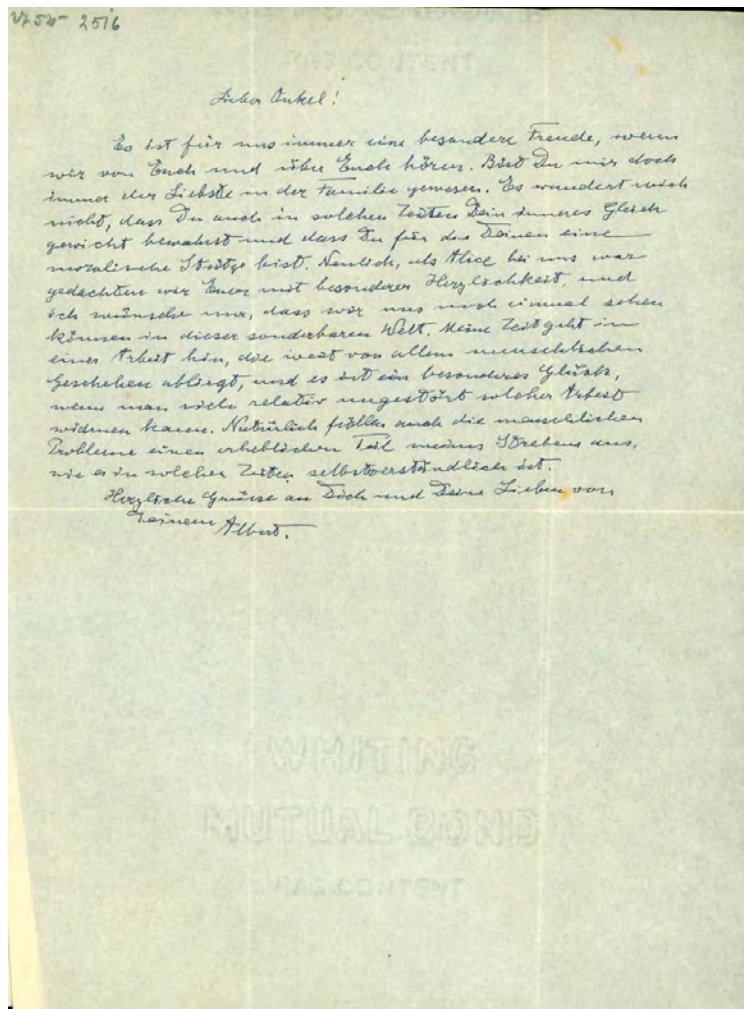 2516
Lieber Onkel!
Es ist für uns immer eine besondere Freude, wenn
wir von Euch und über Euch hören. Bist Du mir doch
immer der Liebste in der Familie gewesen. Es wundert mich
nicht, dass Du auch in solchen Zeiten Dein inneres Gleich
gewicht bewahrst und dass Du für die Deinen eine
moralische Stütze bist. Neulich, als Alice bei uns war
gedachten wir Euer mit besonderer Herzlichkeit, und
ich wünsche mir, dass wir uns noch einmal sehen
können in dieser sonderbaren Welt. Meine Zeit geht in
einer Arbeit hin, die weit von allem menschlichen
Geschehen abliegt, und es ist ein besonderes Glück,
wenn man sich relativ ungestört solcher Arbeit
widmen kann. Natürlich füllen auch die menschlichen
Probleme einen erheblichen Teil meines Strebens aus,
wie es in solchen Zeiten selbstverständlich ist.
Herzliche Grüsse an Dich und Deine Lieben von
Deinem Albert.
WHITING
MUTUAL BOND